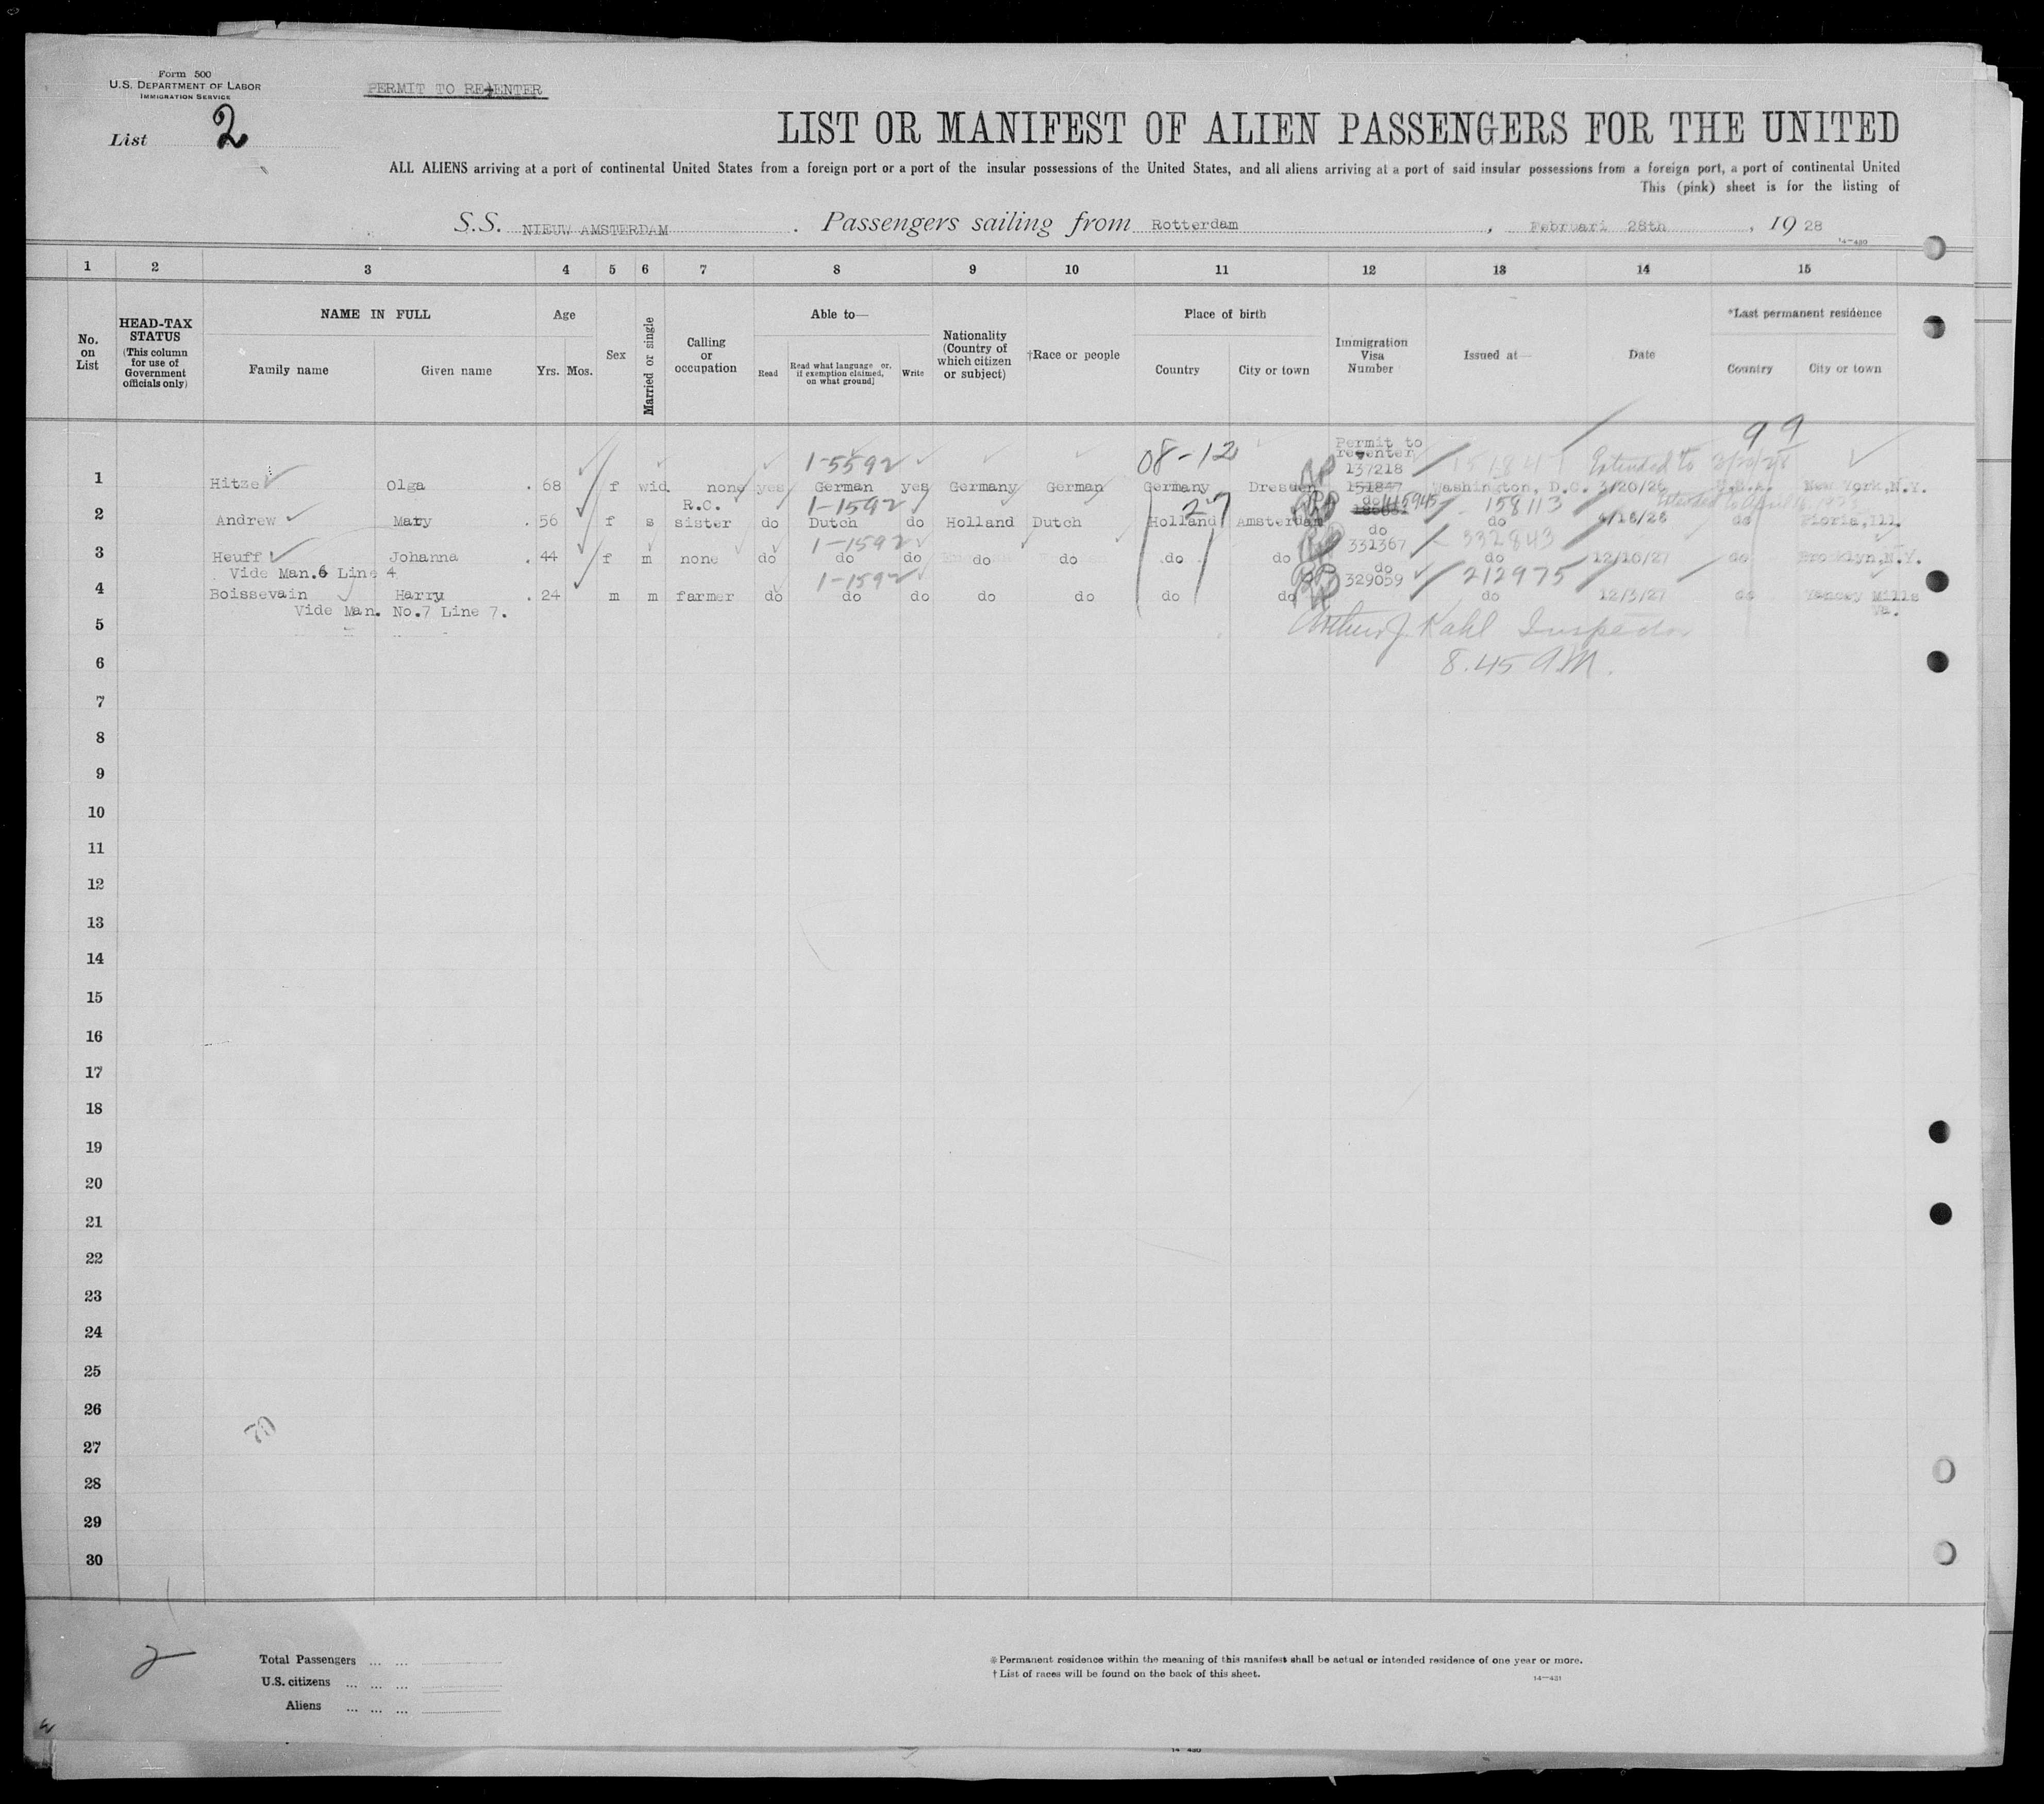 Form 500
U.S. DEPARTMENT OF LABOR
IMMIGRATION SERVICE
PERMIT TO RE-ENTER
List 2
LIST OR MANIFEST OF ALIEN PASSENGERS FOR THE UNITED
ALL ALIENS arriving at a port of continental United States from a foreign port or a port of the insular possessions of the United States, and all aliens arriving at a port of said insular possessions from a foreign port, a port of continental United
This (pink) sheet is for the listing of
S.S. NIEUW AMSTERDAM. Passengers sailing from Rotterdam, Februari 28th, 1928
14—430
1 2 3 4 5 6 7 8 9 10 11 12 13 14 15
No. on List
HEAD-TAX STATUS (This column for use of Government officials only)
NAME IN FULL
Family name Given name
Age
Yrs. Mos.
Sex
Married or single
Calling or occupation
Able to—
Read Read what language or, if exemption claimed, on what ground] Write
Nationality (Country of which citizen or subject)
†Race or people
Place of birth
Country City or town
Immigration Visa Number
Issued at—
Date
*Last permanent residence
Country City or town
99
1-5592 08-12 Permit to reenter 137218 151847 Extended to
1 Hitze Olga 68 f wid. none yes German yes Germany German Germany Dresden 151847 Washington, D.C. 3/20/26 U.S.A. New York, N.Y.
R.C. 1-1592 27 do 158113
2 Andrew Mary 56 f s sister do Dutch do Holland Dutch Holland Amsterdam do do Pioria, Ill.
1-1592 do 332843
3 Heuff Johanna 44 f m none do do do do do do do 331367 do 12/10/27 do Brooklyn, N.Y.
Vide Man.6 Line 4 1-1592 do 212975
4 Boissevain Harry 24 m m farmer do do do do do do do 329059 do 12/3/27 do Yancey Mills
Vide Man. No.7 Line 7. Va.
5 Arthur J. Kahl Inspector
6 8.45 AM.
7
8
9
10
11
12
13
14
15
16
17
18
19
20
21
22
23
24
25
26
27
28
29
30
2
Total Passengers
U.S. citizens
Aliens
* Permanent residence within the meaning of this manifest shall be actual or intended residence of one year or more.
† List of races will be found on the back of this sheet.
14—431
14—430